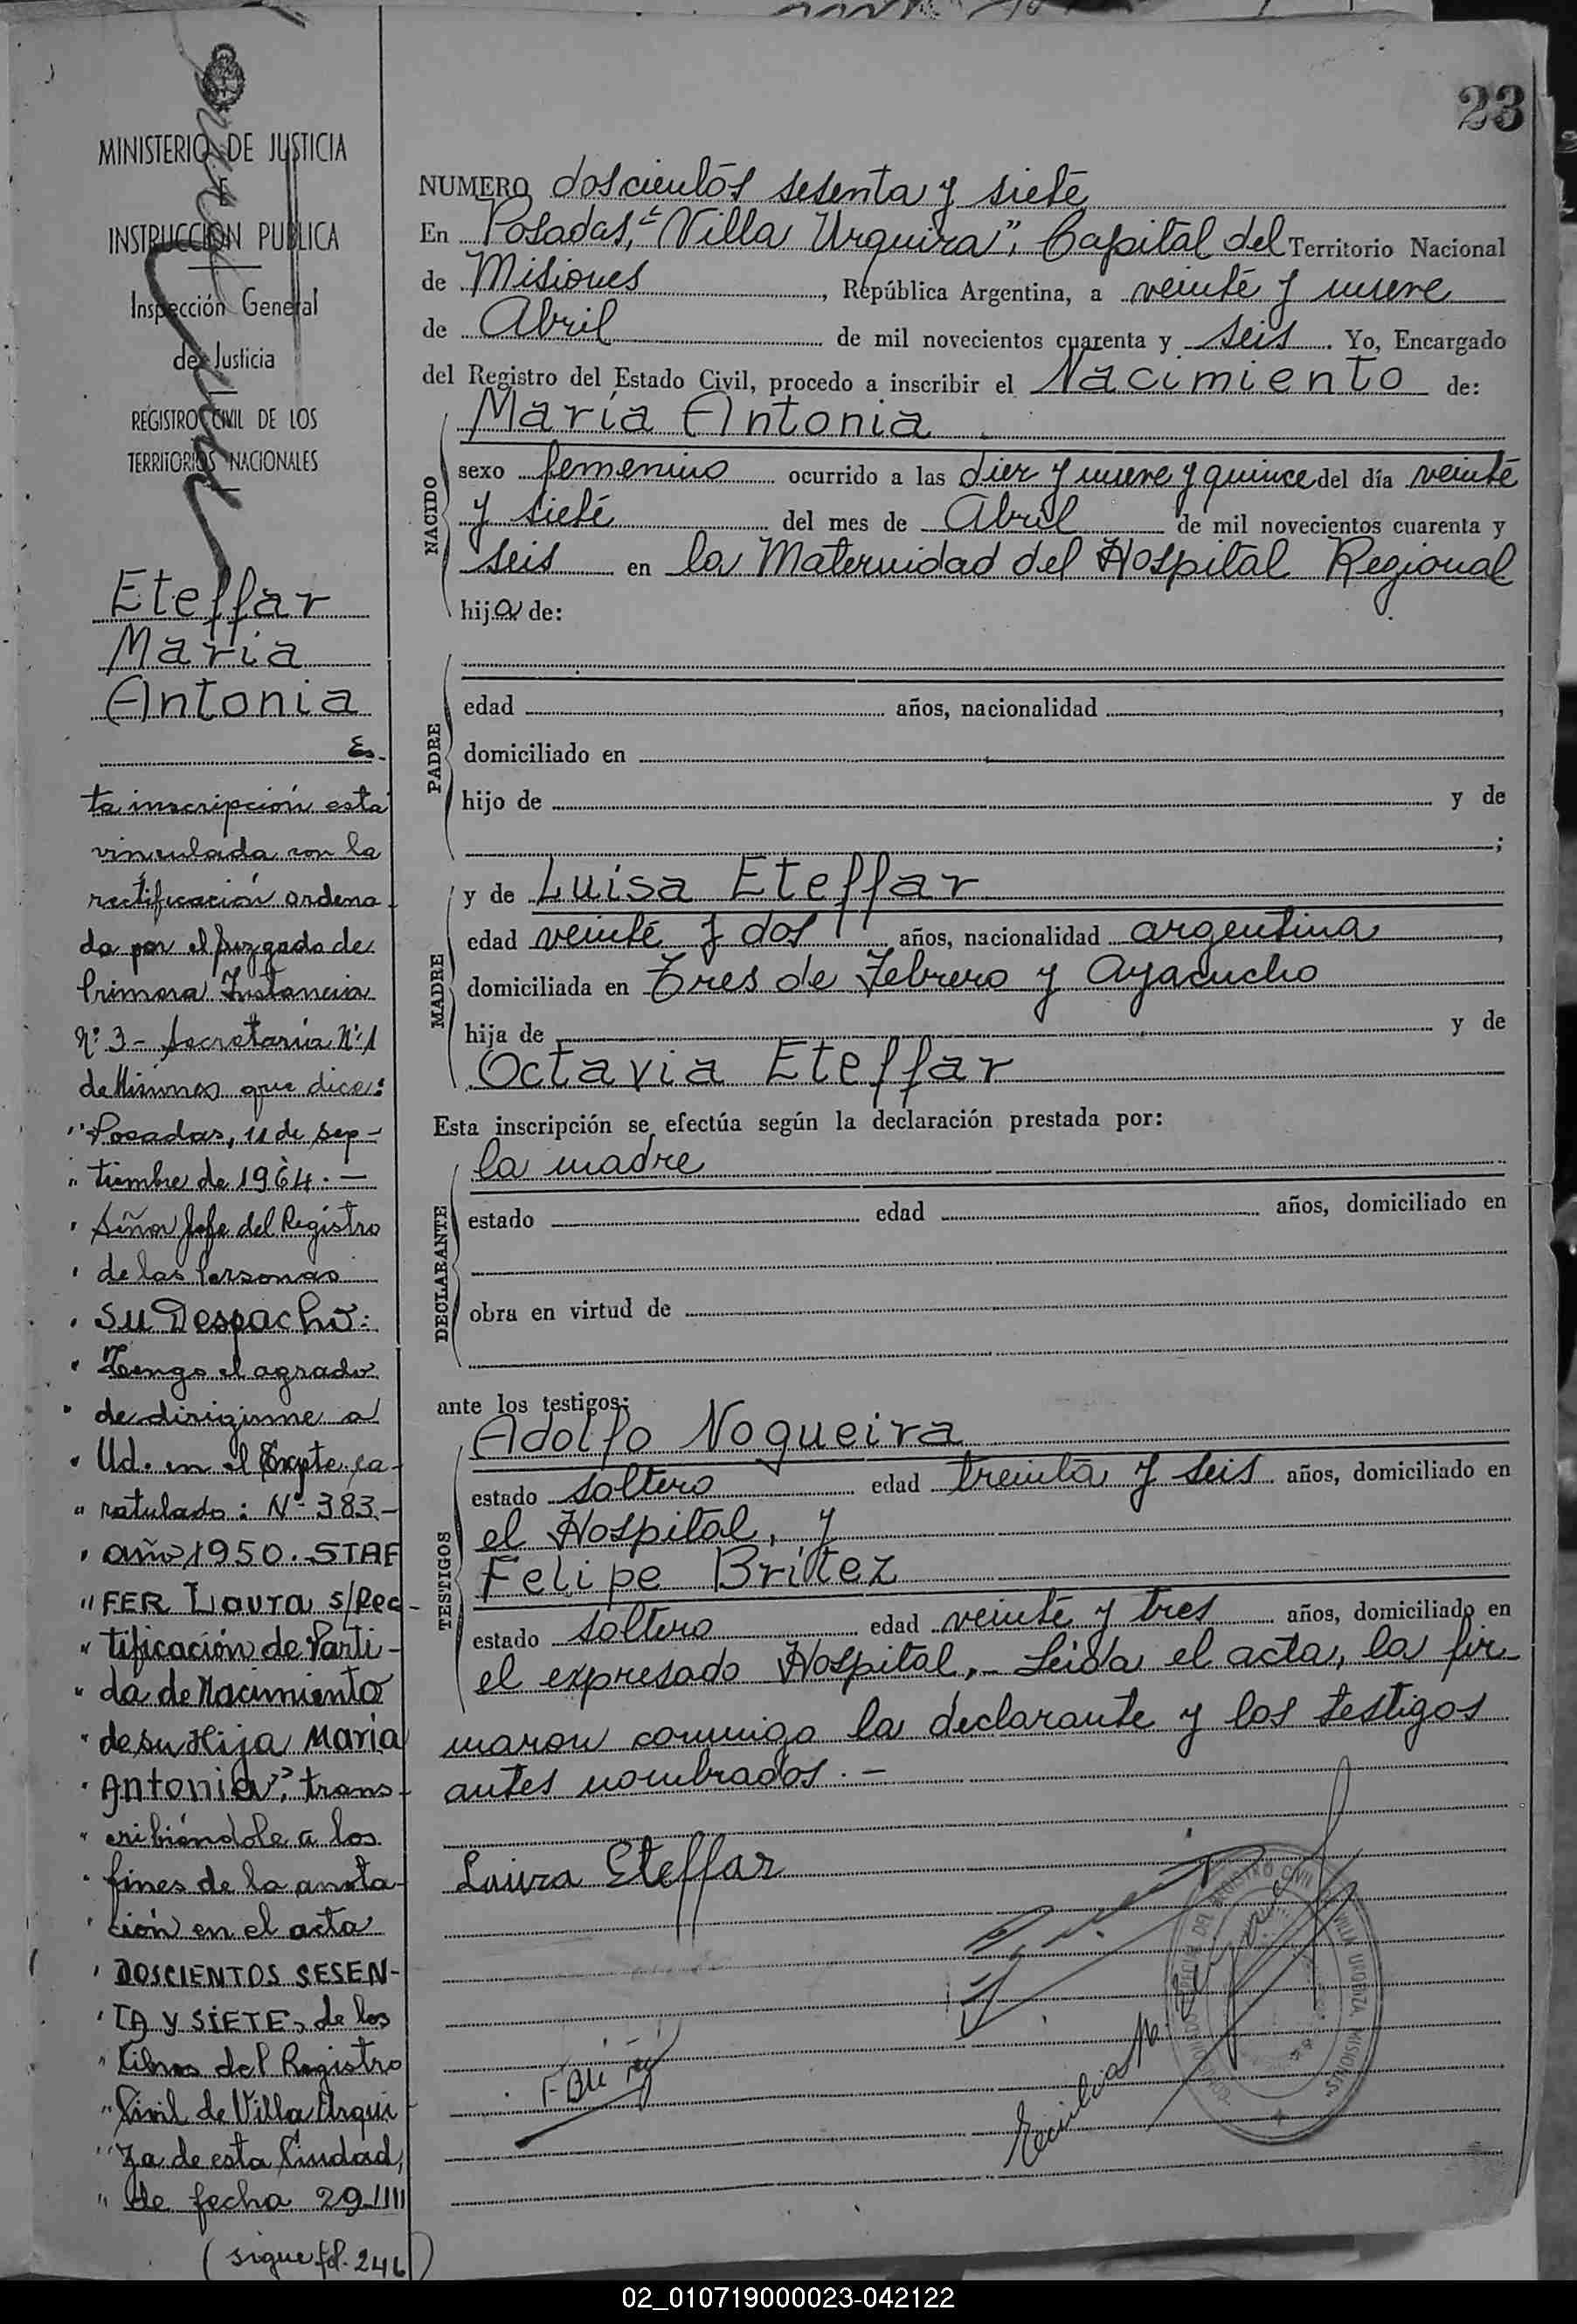 23
MINISTERIO DE JUSTICIA
E
INSTRUCCION PUBLICA
Inspección General
de Justicia
REGISTRO CIVIL DE LOS
TERRITORIOS NACIONALES
Eteffar
María
Antonia
Es-
ta inscripción está
vinculada con la
rectificación ordena-
da por el Juzgado de
Primera Instancia
Nº 3 - Secretaría Nº 1
de Misiones que dice:
"Posadas, 11 de sep-
" tiembre de 1964. —
" Señor Jefe del Registro
" de las Personas
" SU Despacho:
" Tengo el agrado
" de dirigirme a
" Ud. en el Expte. ca-
" ratulado: Nº 383-
" año 1950. STAF
" FER Laura s/Rec-
" tificación de Parti-
" da de Nacimiento
" de su Hija María
" Antonia", trans-
" cribiéndole a los
" fines de la anota-
" ción en el acta
" DOSCIENTOS SESEN-
" TA Y SIETE, de los
" Libros del Registro
" Civil de Villa Urqui
" za de esta Ciudad,
" de fecha 29/IIII
(sigue fol. 246)
NUMERO doscientos sesenta y siete
En Posadas, "Villa Urquiza", Capital del Territorio Nacional
de Misiones, República Argentina, a veinte y nueve
de Abril de mil novecientos cuarenta y seis. Yo, Encargado
del Registro del Estado Civil, procedo a inscribir el Nacimiento de:
NACIDO
María Antonia
sexo femenino ocurrido a las diez y nueve y quince del día veinte
y siete del mes de Abril de mil novecientos cuarenta y
seis en la Maternidad del Hospital Regional
hija de:
PADRE
edad años, nacionalidad ,
domiciliado en
hijo de y de
;
MADRE
y de Luisa Eteffar
edad veinte y dos años, nacionalidad argentina,
domiciliada en Tres de Febrero y Ayacucho
hija de y de
Octavia Eteffar
Esta inscripción se efectúa según la declaración prestada por:
DECLARANTE
la madre
estado edad años, domiciliado en
obra en virtud de
ante los testigos:
TESTIGOS
Adolfo Nogueira
estado soltero edad treinta y seis años, domiciliado en
el Hospital, y
Felipe Brítez
estado soltero edad veinte y tres años, domiciliado en
el expresado Hospital.- Leída el acta, la fir-
maron conmigo la declarante y los testigos
antes nombrados. —
Luiza Eteffar
DEL REGISTRO CIVIL VILLA URQUIZA MISIONES
02_010719000023-042122